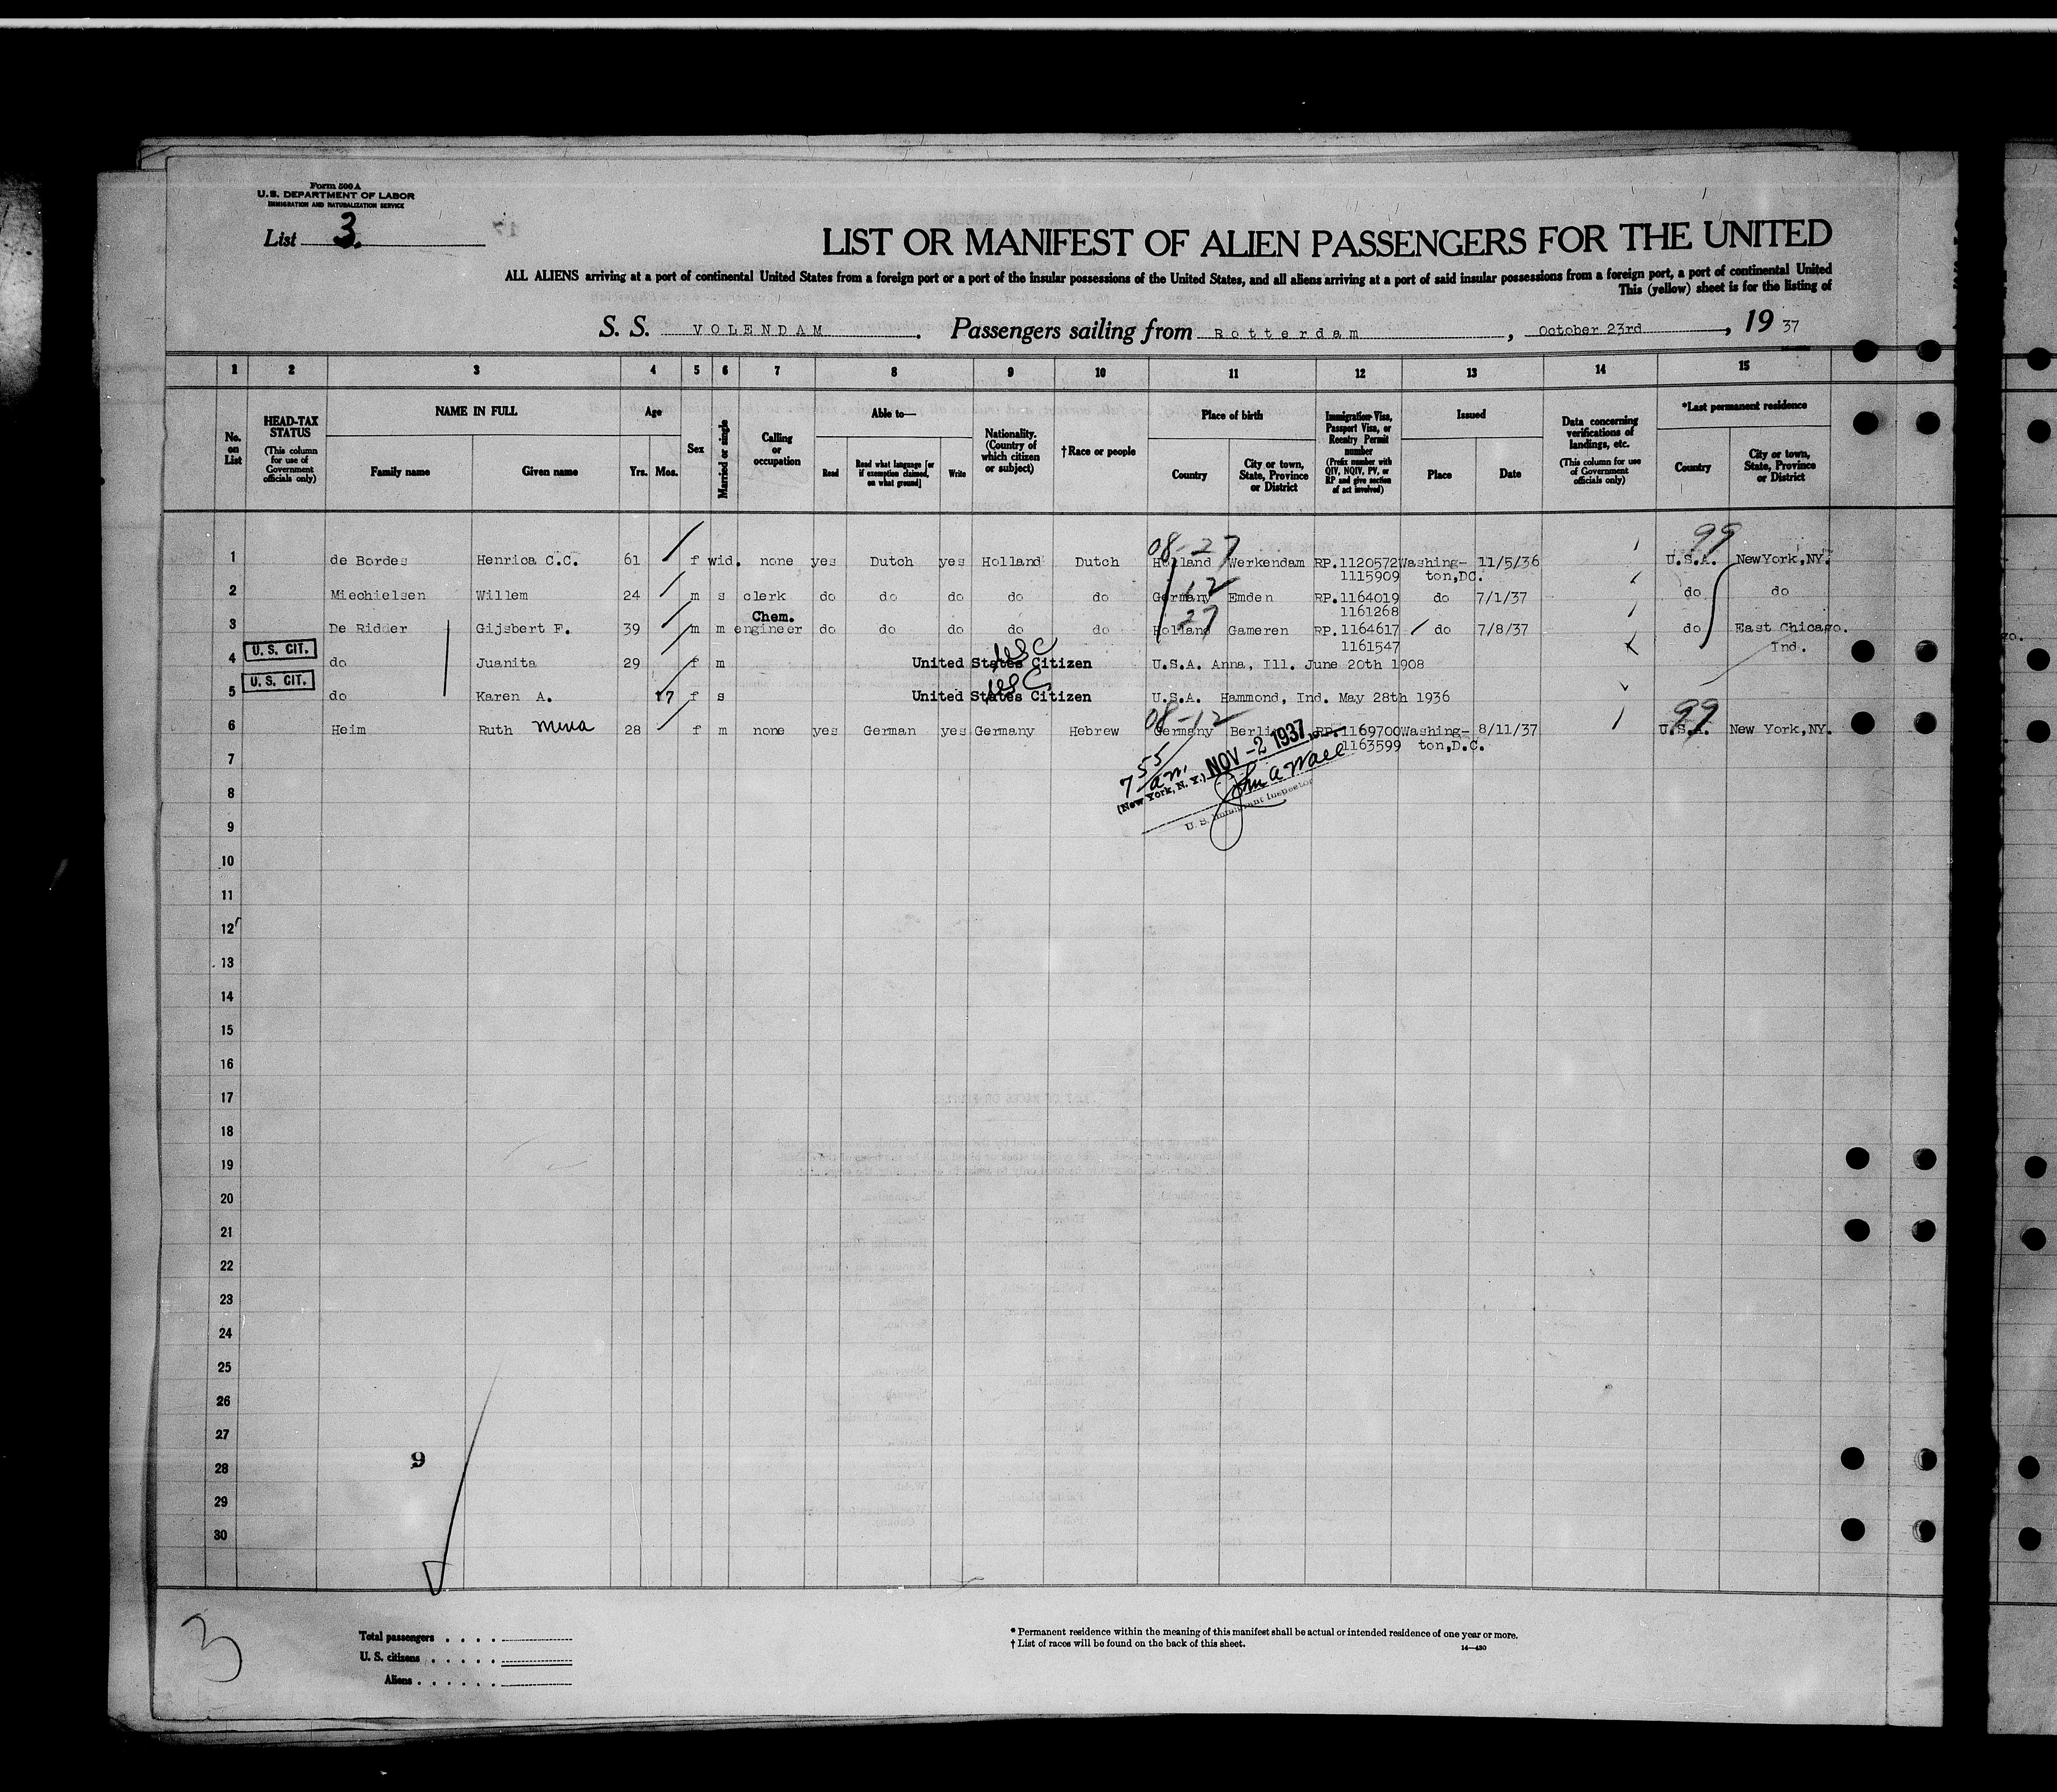 Form 500 A
U.S. DEPARTMENT OF LABOR
IMMIGRATION AND NATURALIZATION SERVICE
List 3.
LIST OR MANIFEST OF ALIEN PASSENGERS FOR THE UNITED
ALL ALIENS arriving at a port of continental United States from a foreign port or a port of the insular possessions of the United States, and all aliens arriving at a port of said insular possessions from a foreign port, a port of continental United
This (yellow) sheet is for the listing of
S. S. VOLENDAM. Passengers sailing from Rotterdam, October 23rd, 19 37
1 2 3 4 5 6 7 8 9 10 11 12 13 14 15
No. on List
HEAD-TAX STATUS (This column for use of Government officials only)
NAME IN FULL
Family name Given name
Age
Yrs. Mos.
Sex
Married or single
Calling or occupation
Able to—
Read Read what language [or if exemption claimed, on what ground] Write
Nationality. (Country of which citizen or subject)
†Race or people
Place of birth
Country City or town, State, Province or District
Immigration Visa, Passport Visa, or Reentry Permit number (Prefix number with QIV, NQIV, PV, or RP and give section of act involved)
Issued
Place Date
Data concerning verifications of landings, etc. (This column for use of Government officials only)
*Last permanent residence
Country City or town, State, Province or District
08-27 99
1 de Bordes Henrica C.C. 61 f wid. none yes Dutch yes Holland Dutch Holland Werkendam RP.1120572 Washing- 11/5/36 U.S.A. NewYork,NY.
1115909 ton,DC.
12
2 Miechielsen Willem 24 m s clerk do do do do do Germany Emden RP.1164019 do 7/1/37 do do
Chem. 27 1161268
3 De Ridder Gijsbert F. 39 m m engineer do do do do do Holland Gameren RP.1164617 do 7/8/37 do East Chicago.
U. S. CIT. USC 1161547 Ind.
4 do Juanita 29 f m United States Citizen U.S.A. Anna, Ill. June 20th 1908
U. S. CIT. USC
5 do Karen A. 17 f s United States Citizen U.S.A. Hammond, Ind. May 28th 1936
08-12 99
6 Heim Ruth 28 f m none yes German yes Germany Hebrew Germany Berlin RP.1169700 Washing- 8/11/37 U.S.A. New York,NY.
1163599 ton,D.C.
7 55 am.
(New York, N. Y.) NOV -2 1937
John A Wall
U. S. Immigrant Inspector
7
8
9
10
11
12
13
14
15
16
17
18
19
20
21
22
23
24
25
26
27
9
28
29
30
3
Total passengers . . . .
U. S. citizens . . . . .
Aliens . . . . . .
* Permanent residence within the meaning of this manifest shall be actual or intended residence of one year or more.
† List of races will be found on the back of this sheet.
14—430